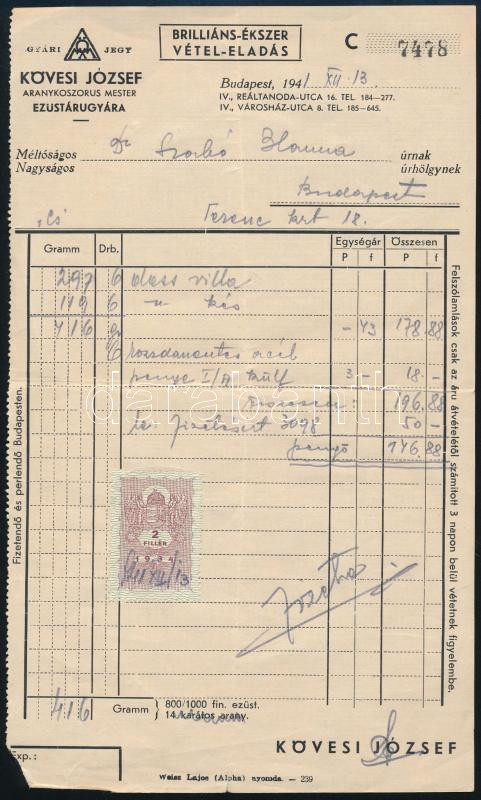 GYÁRI JEGY
KÖVESI JÓZSEF
ARANYKOSZORUS MESTER
EZUSTÁRUGYÁRA
BRILLIÁNS-ÉKSZER
VÉTEL-ELADÁS
C 7478
Budapest, 1941 XII. 13
IV., REÁLTANODA-UTCA 16. TEL. 184—277.
IV., VÁROSHÁZ-UTCA 8. TEL. 185—645.
Méltóságos Dr Szabó Hanna úrnak
Nagyságos úrhölgynek
Budapest
Ferenc krt 18.
Gramm Drb. Egységár Összesen
P f P f
297 6 dess villa
119 6 -"- kés
416 gr —43 178.88
6 rozsdamentes acél
penge I/A külf 3 — 18.—
196.88
50 —
pengő 146.88
2
FILLÉR
1934
41 XII/13
416 Gramm 800/1000 fin. ezüst.
14 karátos arany.
KÖVESI JÓZSEF
Exp.:
Weisz Lajos (Alpha) nyomda. — 239
Fizetendő és perlendő Budapesten.
Felszólamlások csak az áru átvételétől számított 3 napon belül vétetnek figyelembe.
darabanth